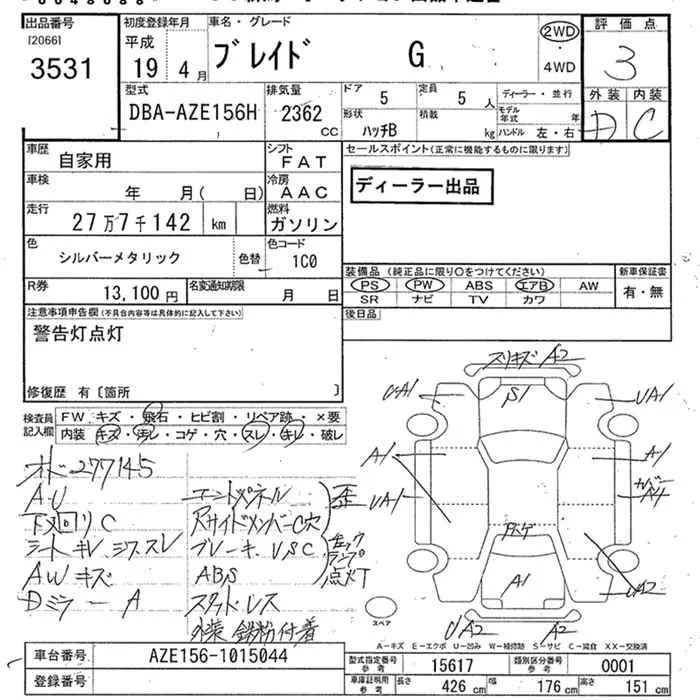 出品番号
[2066]
3531
初度登録年月
平成
19 4月
車名・グレード
ブレイド G
2WD
・
4WD
評価点
3
外装 内装
D C
型式
DBA-AZE156H
排気量
2362
CC
ドア
5
定員
5 人
ディーラー・並行
モデル
年式 年
形状
ハッチB
積載
kg
ハンドル 左・右
車歴
自家用
シフト
FAT
セールスポイント(正常に機能するものに限ります)
ディーラー出品
車検
年 月( 日)
冷房
AAC
走行
27万7千142 km
燃料
ガソリン
色
シルバーメタリック
色替
色コード
1C0
R券
13,100円
名変通知期限
月 日
装備品 (純正品に限り○をつけてください)
PS PW ABS エアB AW
SR ナビ TV カワ
新車保証書
有・無
後日品
注意事項申告欄(不具合内容等は具体的に記入して下さい)
警告灯点灯
修復歴 有〔箇所 〕
検査員
記入欄
FW キズ・飛石・ヒビ割・リペア跡・×要
内装 キズ・汚レ・コゲ・穴・スレ・キレ・破レ
オド277145
AU
下廻りC
シート キレ、シワ、スレ
AWキズ
Dミラー A
エンドパネル
RサイドメンバーC穴
歪
ブレーキ、VSC
ABS
チェック
ランプ
点灯
スタッドレス
外装 鉄粉付着
スリキズ A2
UA1
S1
UA1
A1
A1
UA1
カバー
A4
A1
UA2
UA2
A2
スペア
A-キズ E-エクボ U-凹み W-補修跡 S-サビ C-腐食 XX-交換済
車台番号
AZE156-1015044
登録番号
型式指定番号
参考
15617
類別区分番号
参考
0001
車庫証明用
参考
長さ
426 cm
幅
176 cm
高さ
151 cm